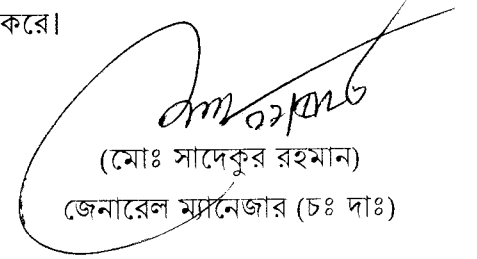 করে।
(মোঃ সাদেকুর রহমান)
জেনারেল ম্যানেজার (চঃ দাঃ)